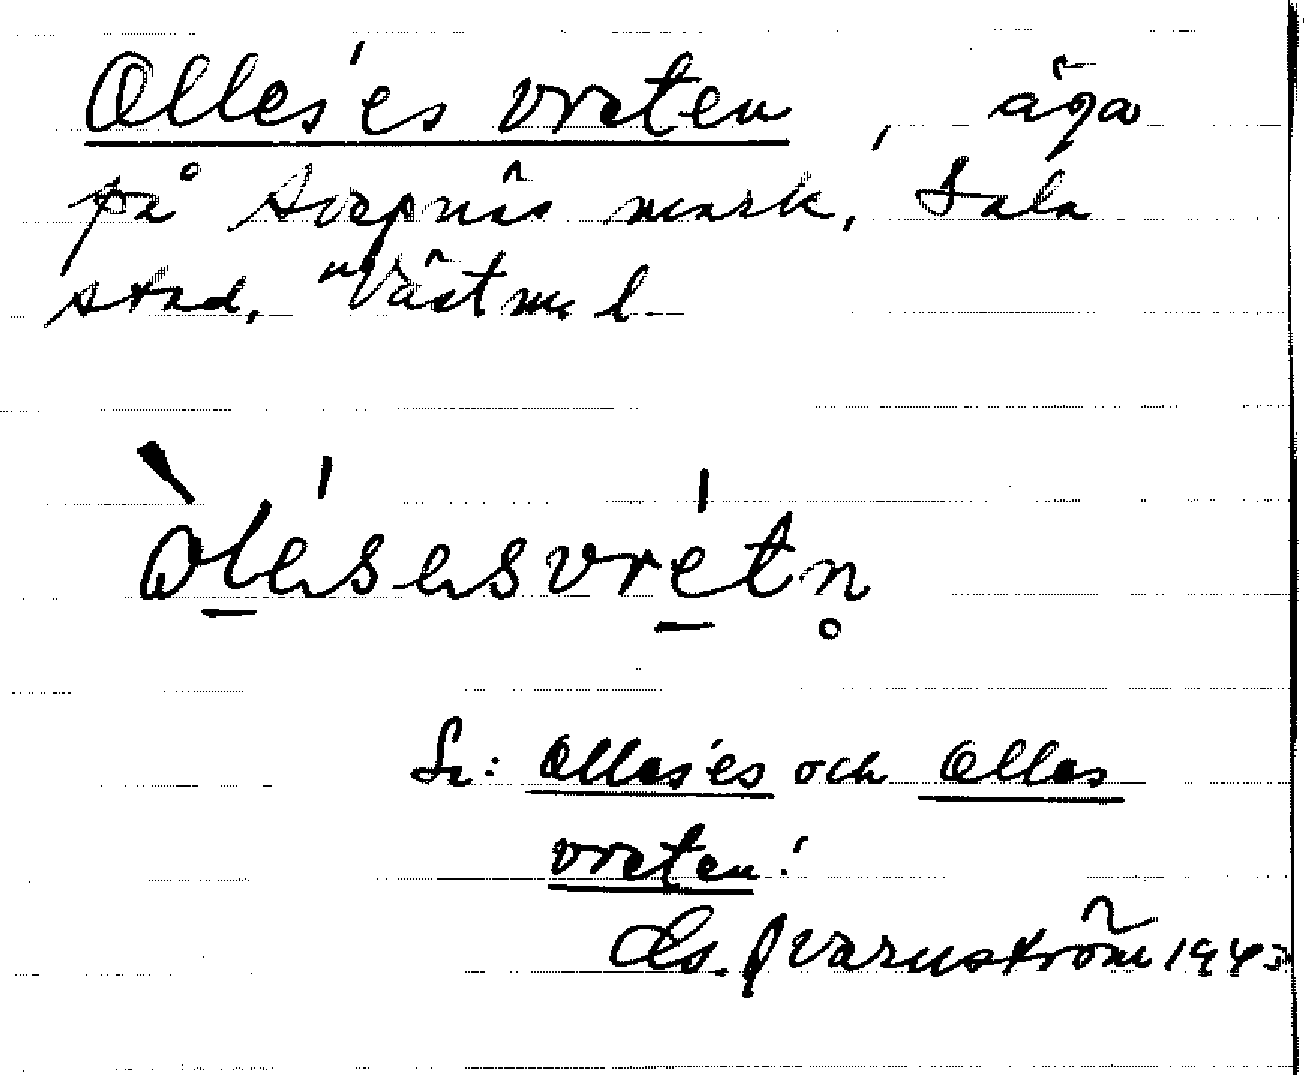 Olles'es vreten, äga
på Svepnäs mark, Sala
stad, Västml
Òlésesvrétn̥
Se: Olles'es och Olles
vreten!
Qvarnström 1943